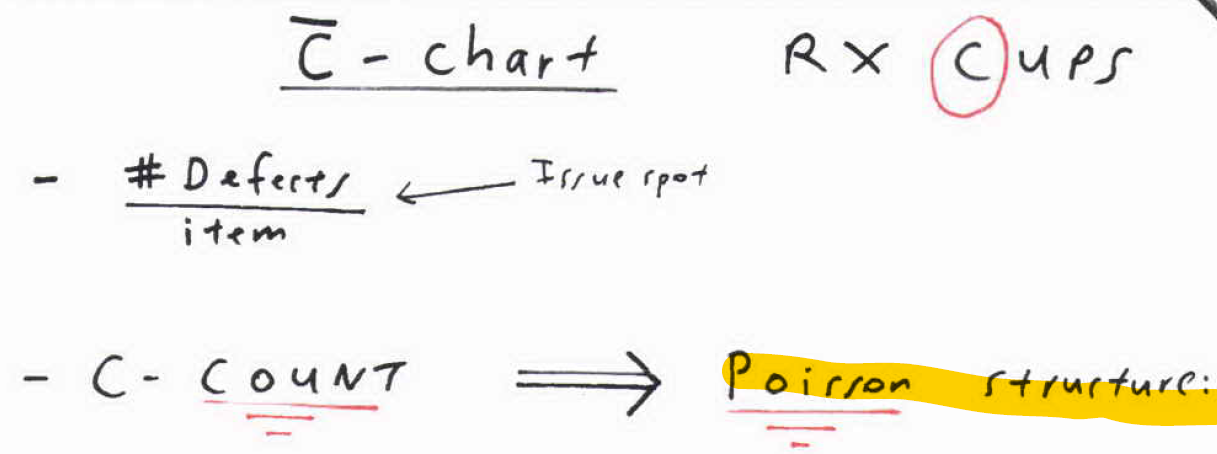 C̅ - chart RX CUPS
- # Defects ← Issue spot
item
- C - COUNT ⟹ Poisson structure: